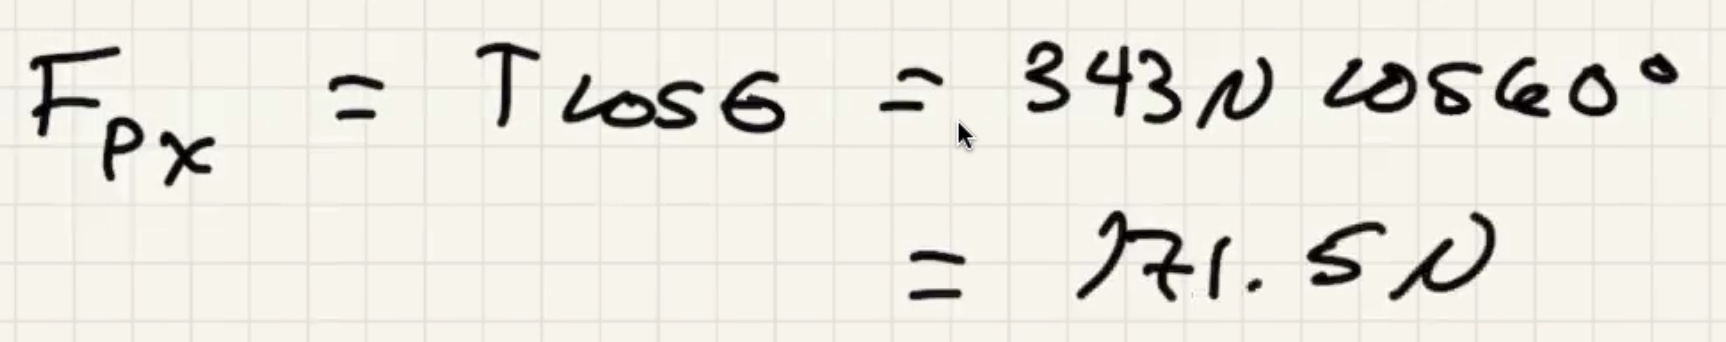 F_Px = T cosθ = 343N cos60°
= 171.5N